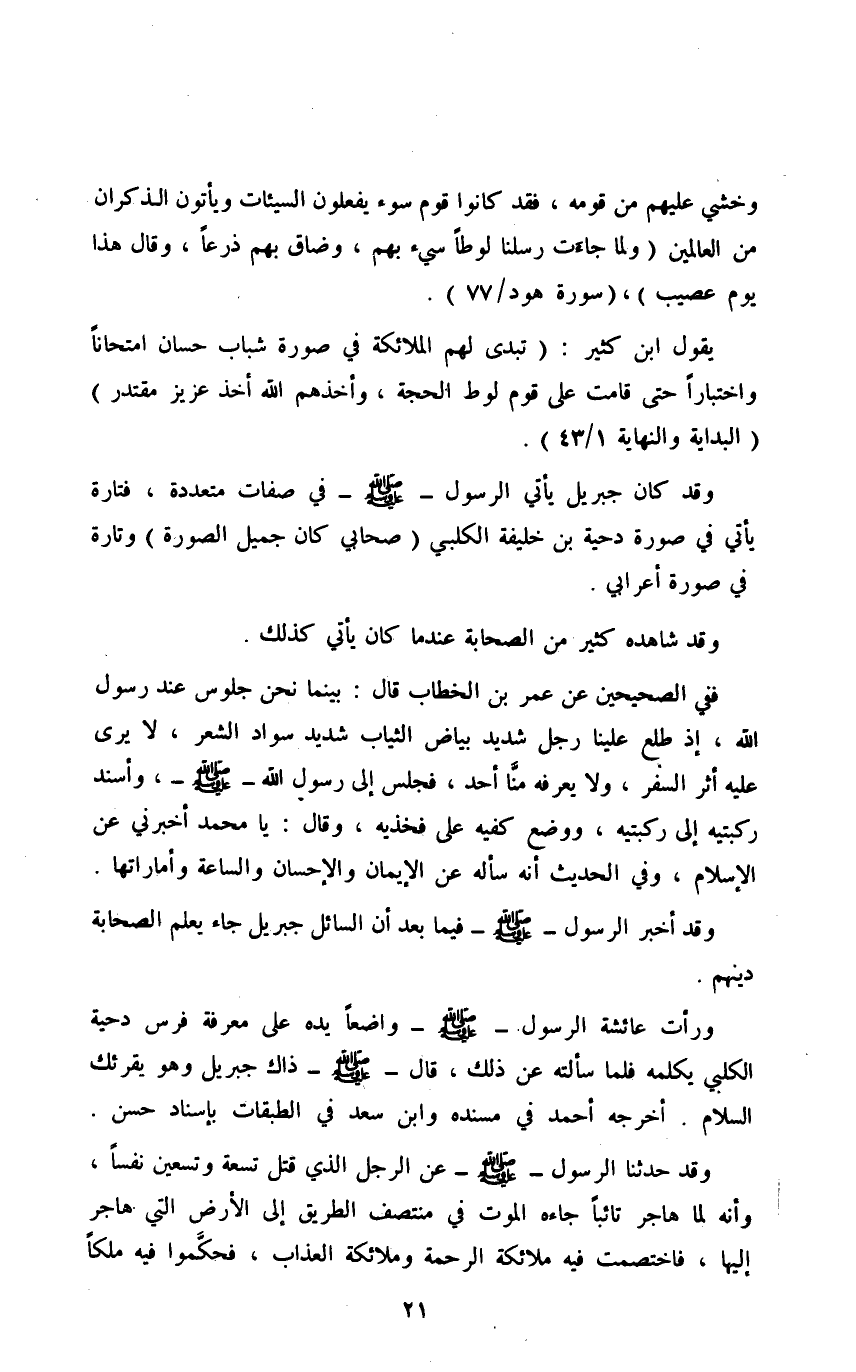 وخشي عليهم من قومه ، فقد كانوا قوم سوء يفعلون السيئات ويأتون الذكران
من العالمين ( ولما جاءت رسلنا لوطاً سيء بهم ، وضاق بهم ذرعاً ، وقال هذا
يوم عصيب ) ، ( سورة هود/٧٧ ) .
يقول ابن كثير : ( تبدى لهم الملائكة في صورة شباب حسان امتحاناً
واختباراً حتى قامت على قوم لوط الحجة ، وأخذهم الله أخذ عزيز مقتدر )
( البداية والنهاية ٤٣/١ ) .
وقد كان جبريل يأتي الرسول – ﷺ – في صفات متعددة ، فتارة
يأتي في صورة دحية بن خليفة الكلبي ( صحابي كان جميل الصورة ) وتارة
في صورة أعرابي .
وقد شاهده كثير من الصحابة عندما كان يأتي كذلك .
ففي الصحيحين عن عمر بن الخطاب قال : بينما نحن جلوس عند رسول
الله ، إذ طلع علينا رجل شديد بياض الثياب شديد سواد الشعر ، لا يرى
عليه أثر السفر ، ولا يعرفه منَّا أحد ، فجلس إلى رسول الله – ﷺ – ، وأسند
ركبتيه إلى ركبتيه ، ووضع كفيه على فخذيه ، وقال : يا محمد أخبرني عن
الإسلام ، وفي الحديث أنه سأله عن الإيمان والإحسان والساعة وأماراتها .
وقد أخبر الرسول – ﷺ – فيما بعد أن السائل جبريل جاء يعلم الصحابة
دينهم .
ورأت عائشة الرسول – ﷺ – واضعاً يده على معرفة فرس دحية
الكلبي يكلمه فلما سألته عن ذلك ، قال – ﷺ – ذاك جبريل وهو يقرئك
السلام . أخرجه أحمد في مسنده وابن سعد في الطبقات بإسناد حسن .
وقد حدثنا الرسول – ﷺ – عن الرجل الذي قتل تسعة وتسعين نفساً ،
وأنه لما هاجر تائباً جاءه الموت في منتصف الطريق إلى الأرض التي هاجر
إليها ، فاختصمت فيه ملائكة الرحمة وملائكة العذاب ، فحكَّموا فيه ملكاً
٢١